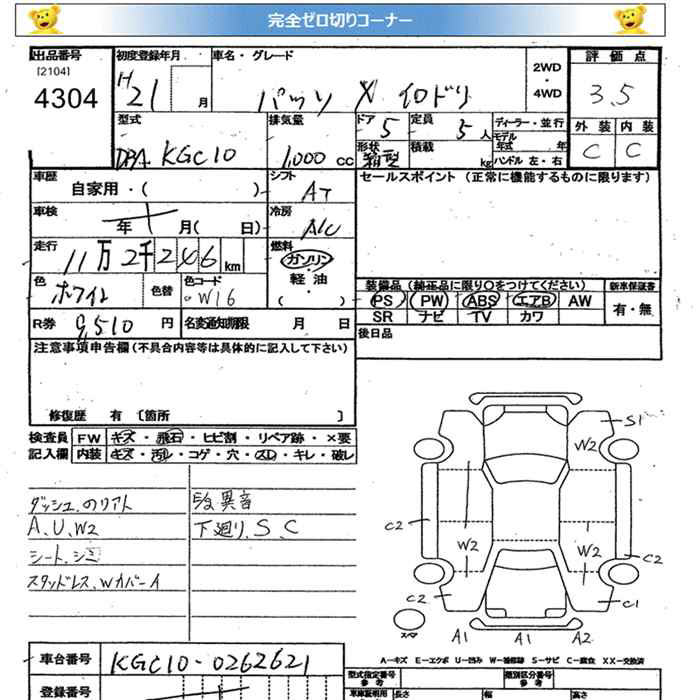 完全ゼロ切りコーナー
出品番号
[2104]
4304
初度登録年月
H 21 月
車名・グレード
パッソ X イロドリ
2WD
4WD
評価点
3.5
外装 内装
C C
型式
DBA KGC10
排気量
1,000 cc
ドア 5
形状 箱型
定員 5 人
積載 kg
ディーラー・並行
モデル年式 年
ハンドル 左・右
車歴
自家用・( )
シフト
AT
車検
年 月( 日)
冷房
A/C
走行
11万2千246km
燃料
ガソリン
軽油
( )
色
ホワイト
色替
色コード
W16
R券 9,510 円
名変通知期限 月 日
セールスポイント (正常に機能するものに限ります)
装備品 (純正品に限り○をつけてください) 新車保証書
PS PW ABS エアB AW
SR ナビ TV カワ
有・無
後日品
注意事項申告欄 (不具合内容等は具体的に記入して下さい)
修復歴 有 [箇所 ]
検査員 FW キズ・飛石・ヒビ割・リペア跡・×要
記入欄 内装 キズ・汚れ・コゲ・穴・スレ・キレ・破レ
ダッシュ、のリアト
A、U、W2
シート、シミ
スタッドレス、Wカバーイ
異音
下廻り、S、C
S1
W2
C2
W2
W2
C2
C2
C1
スペア
A1 A1 A2
A-キズ E-エクボ U-凹み W-補修跡 S-サビ C-腐食 XX-交換済
車台番号 KGC10-0262621
登録番号
型式指定番号 参考
類別区分番号 参考
車庫証明用 長さ 幅 高さ